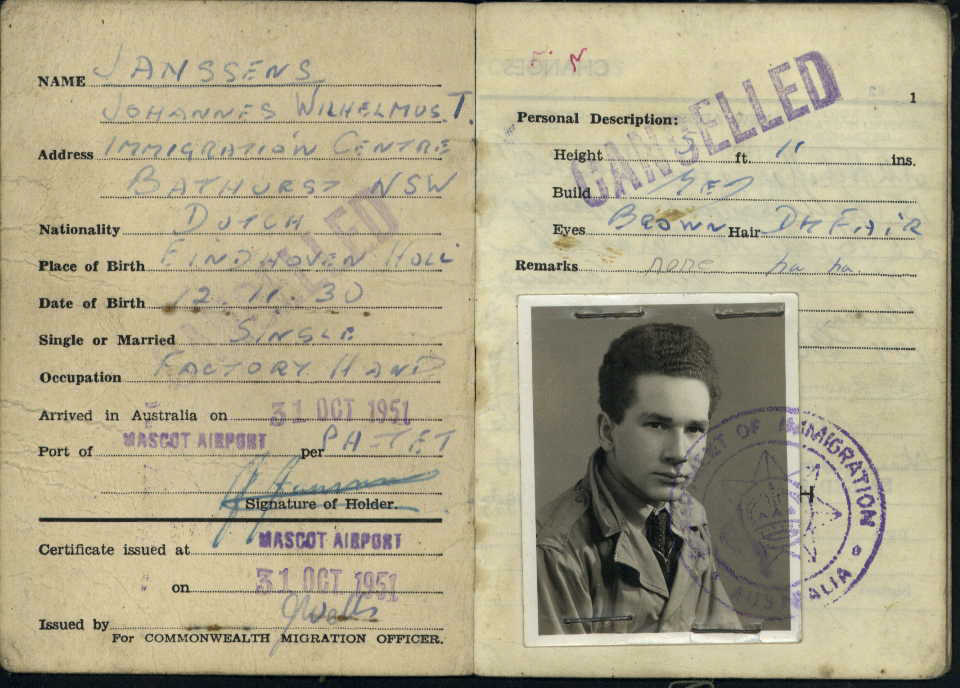 NAME JANSSENS
JOHANNES WILHELMUS. T.
Address IMMIGRATION CENTRE
BATHURST NSW
Nationality DUTCH
Place of Birth EINDHOVEN HOLL
Date of Birth 12.11.30
Single or Married SINGLE
Occupation FACTORY HAND
Arrived in Australia on 31 OCT 1951
Port of MASCOT AIRPORT per PH-TET
Signature of Holder.
Certificate issued at MASCOT AIRPORT
on 31 OCT 1951
Issued by
For COMMONWEALTH MIGRATION OFFICER.
CANCELLED
CHANGES
1
Personal Description:
CANCELLED
Height 5 ft 11 ins.
Build MED
Eyes BROWN Hair DK FAIR
Remarks none ha ha.
DEPARTMENT OF IMMIGRATION
AUSTRALIA